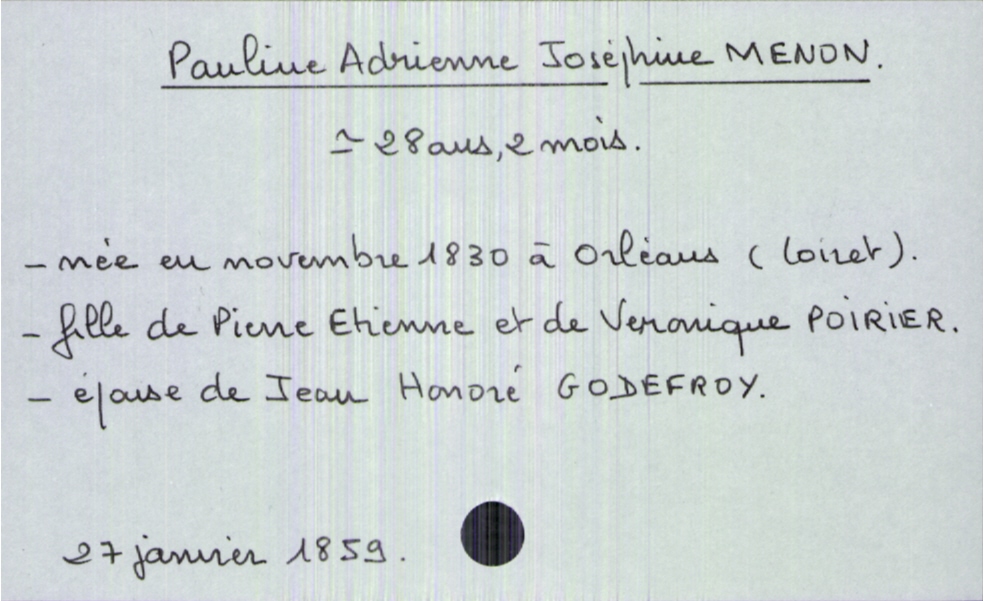 Pauline Adrienne Joséphine MENON.
≃ 28 ans, 2 mois.
- née en novembre 1830 à Orléans (Loiret).
- fille de Pierre Etienne et de Veronique POIRIER.
- épouse de Jean Honoré GODEFROY.
27 janvier 1859.